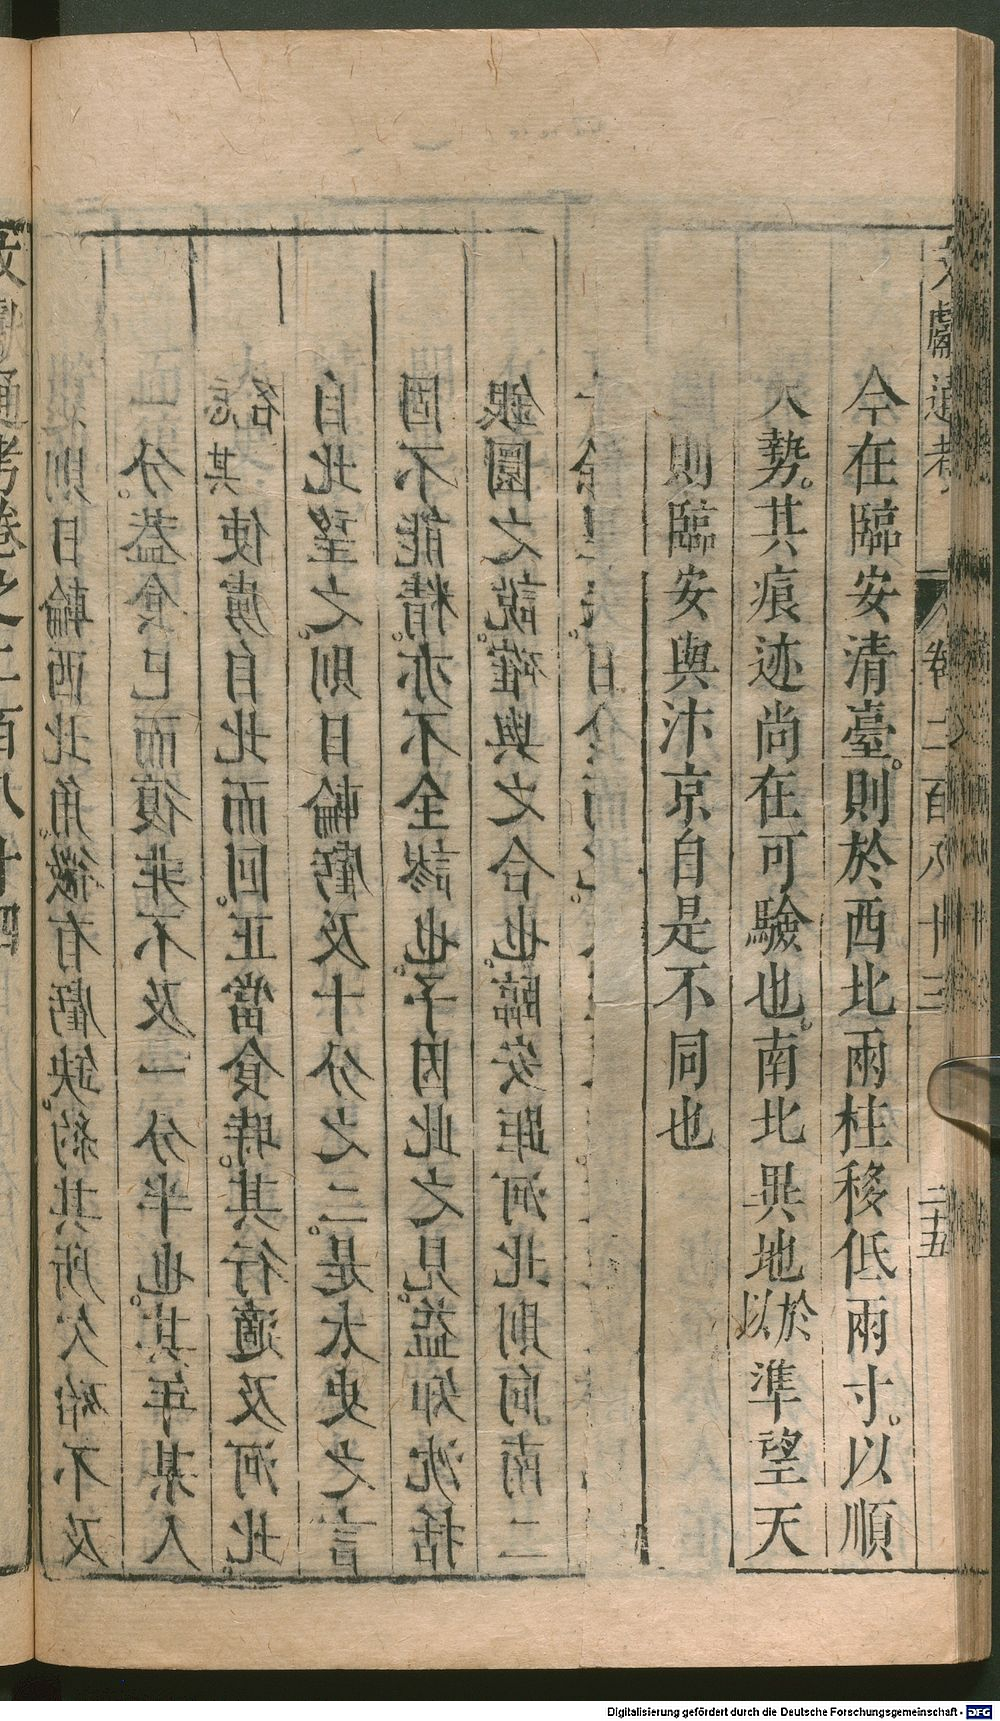 文獻通考
卷二百八十三
二十五
今在臨安清臺。則於西北兩柱移低兩寸。以順
天勢。其痕迹尚在可驗也。南北異地於以準望天
則臨安與汴京自是不同也
則日輪西北角。微有虧缺。約其所欠殆不及
一分。蓋食已而復非不及一分半也。其年某人
忘其名使虜自北而回。正當食時。其行適及河北。
自北望之。則日輪虧及十分之二。是太史之言
固不能精。亦不全謬也。予因此之見。益知沈括
銀圜之說。確與之合也。臨安距河北則向南二
千餘里矣。日
文獻通考卷之二百八十四
Digitalisierung gefördert durch die Deutsche Forschungsgemeinschaft - DFG